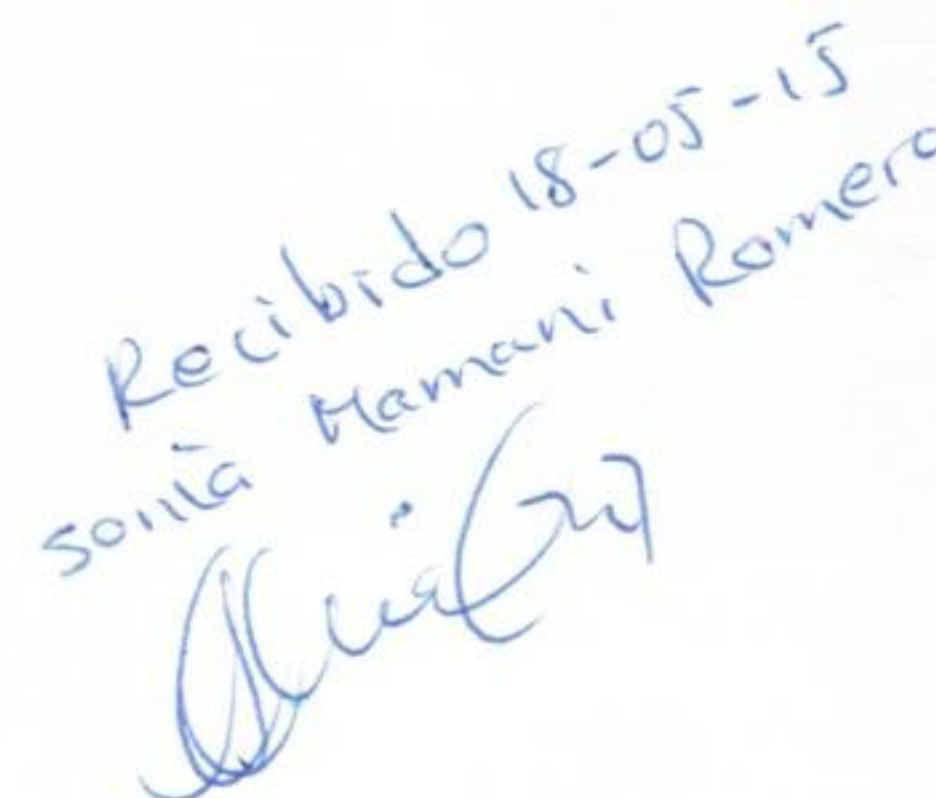 Recibido 18-05-15
sonia Mamani Romero